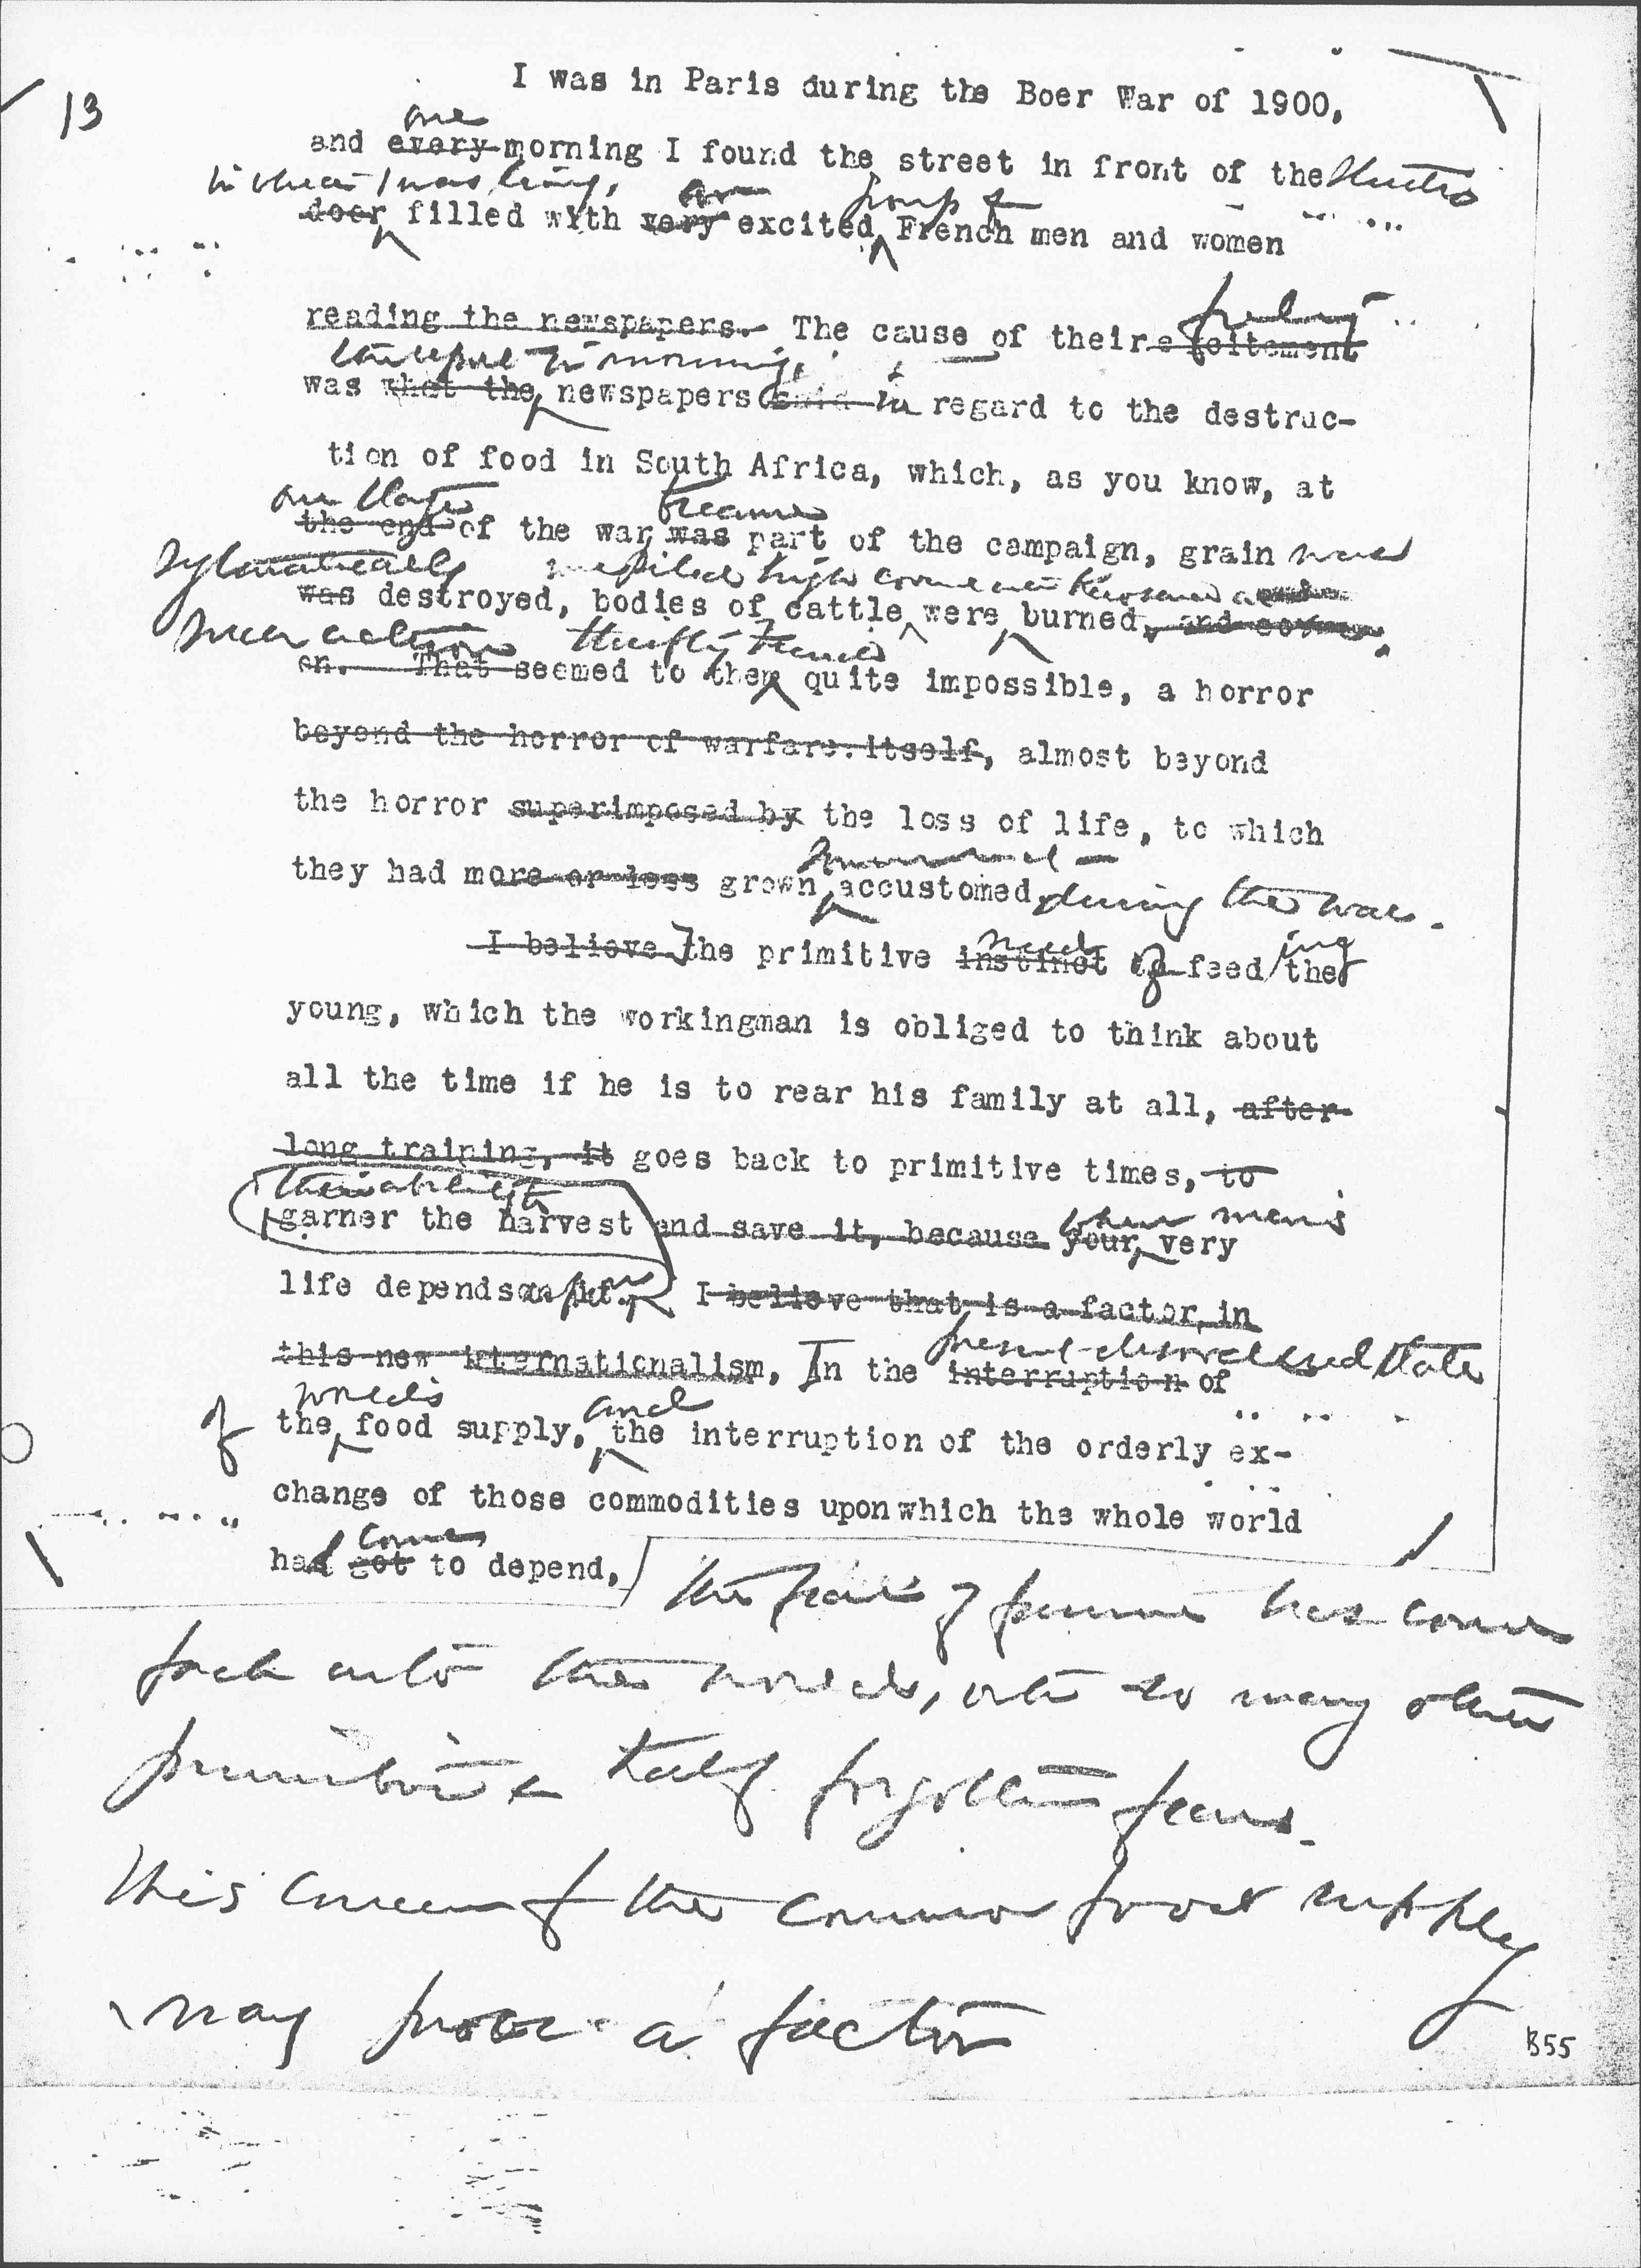 13
I was in Paris during the Boer War of 1900,
one
and every morning I found the street in front of the
in which I was living,
an
group of
door filled with very excited French men and women
feeling
reading the newspapers. The cause of their excitement
in morning,
was what the newspapers said in regard to the destruc-
tion of food in South Africa, which, as you know, at
one stage
became
the end of the war was part of the campaign, grain was
systematically
were piled high covered with kerosene
was destroyed, bodies of cattle were burned, and so
such action
thrifty French
on. That seemed to them quite impossible, a horror
beyond the horror of warfare itself, almost beyond
the horror superimposed by the loss of life, to which
they had more or less grown accustomed during the war.
need
ing
I believe The primitive instinct of to feed the
young, which the workingman is obliged to think about
all the time if he is to rear his family at all, after
long training, it goes back to primitive times, to
their ability to
when men's
garner the harvest and save it, because your very
life depends upon it. I believe that is a factor in
present disordered state
this new internationalism, In the interruption of
world's
and
of the food supply, the interruption of the orderly ex-
change of those commodities upon which the whole world
come
had got to depend,
the fear of famine has come
back into the world, with so many other
primitive & half forgotten fears.
This concern for the common food supply
may prove a factor
B55